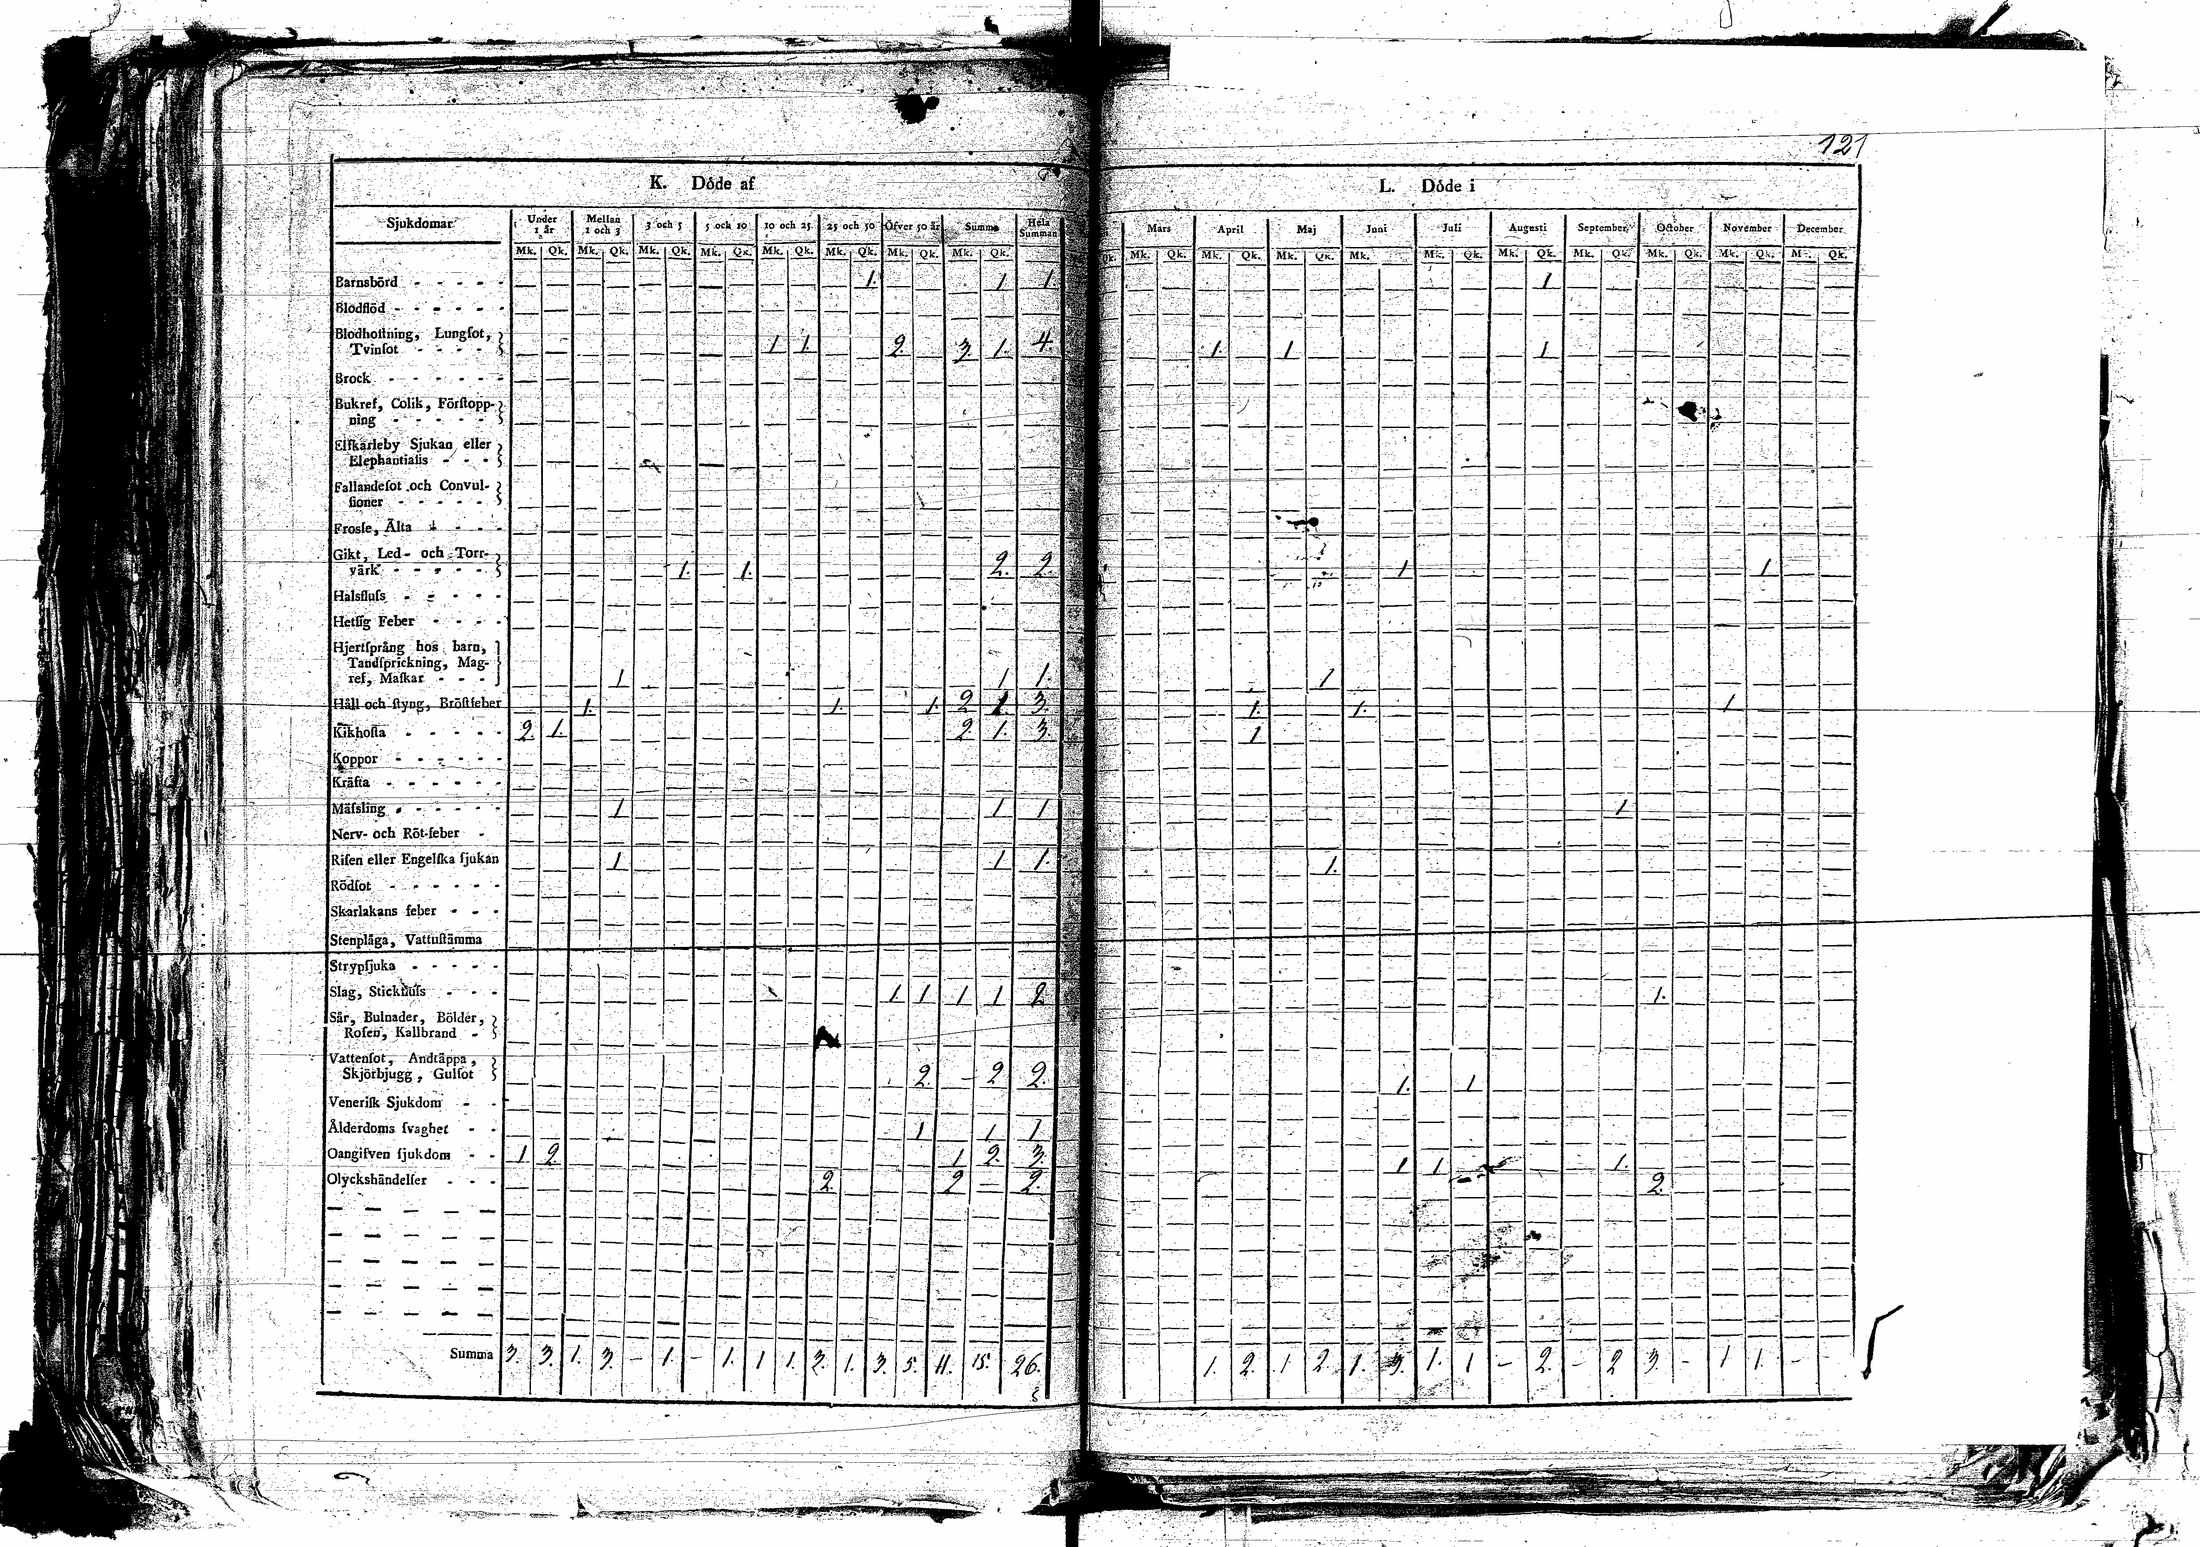 121
K. Döde af
L. Döde i
Sjukdomar Under 1 år Mellan 1 och 3 3 och 5 5 och 10 10 och 25 25 och 50 Öfver 50 år Summa Hela Summan
Mars April Maj Juni Juli Augusti September October November December
Mk. Qk. Mk. Qk. Mk. Qk. Mk. Qk. Mk. Qk. Mk. Qk. Mk. Qk. Mk. Qk.
Qk. Mk. Qk. Mk. Qk. Mk. Qk. Mk. Mk. Qk. Mk. Qk. Mk. Qk. Mk. Qk. Mk. Qk. M. Qk.
Barnsbörd - - - - - 1. 1 1 1
Blodflöd - - - - - -
Blodhostning, Lungſot,
Tvinſot - - - - 1 1. 2. 3. 1. 4. 1. 1 1
Brock - - - - - -
Bukref, Colik, Förſtopp-
ning - - - - -
Elfkarleby Sjukan eller
Elephantiaſis - - -
Fallandeſot och Convul-
ſioner - - - - -
Frosſe, Älta - - - -
Gikt, Led- och Torr-
värk - - - - - 1. 1. 2. 2. 1 1
Halsfluſs - - - - -
Hetſig Feber - - - -
Hjertſprång hos barn,
Tandſprickning, Mag-
ref, Maſkar - - - 1 1 1. 1
Håll och ſtyng, Bröſtfeber 1. 1. 1. 2 1 3. 1. 1. 1
Kikhoſta - - - - - 2. 1. 2. 1. 3. 1
Koppor - - - - - -
Kräfta - - - - - -
Mäſsling - - - - - - 1 1 1 1
Nerv- och Röt-feber -
Riſen eller Engelſka ſjukan 1 1 1. 1.
Rödſot - - - - - -
Skarlakans feber - - -
Stenplåga, Vattuſtämma
Strypſjuka - - - - -
Slag, Stickfluſs - - - 1 1 1 1 2 1.
Sår, Bulnader, Bölder,
Roſen, Kallbrand -
Vattenſot, Andtäppa,
Skjörbjugg, Gulſot 2. 2 2. 1. 1
Veneriſk Sjukdom - -
Ålderdoms ſvaghet - - 1 1 1
Oangifven ſjukdom - - 1 2 1 2. 3. 1 1 1.
Olyckshändelſer - - - 2. 2 2 2.
Summa 3. 3. 1. 3. - 1. - 1. 1 1. 3. 1. 3. 5. 11. 15. 26. 1. 2. 1. 2. 1. 3. 1. 1 - 2. - 2 3. - 1 1. -